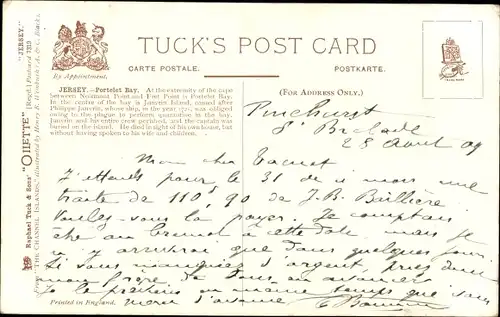 TUCK'S POST CARD
By Appointment.
CARTE POSTALE.
POSTKARTE.
JERSEY.—Portelet Bay. At the extremity of the cape
between Noirmont Point and Fret Point is Portelet Bay.
In the centre of the bay is Janvrin Island, named after
Philippe Janvrin, whose ship, in the year 1721, was obliged
owing to the plague to perform quarantine in the bay.
Janvrin and his entire crew perished, and the captain was
buried on the island. He died in sight of his own house, but
without having spoken to his wife and children.
(FOR ADDRESS ONLY.)
Pinehurst
St Brelade
28 Août 09
Mon cher
J'attends pour le 31 de ce mois une
traite de 110f,90 de J. B. Baillière
Veuillez-vous la payer. Je comptais
être au à cette date mais je
n'y arriverai que dans quelques jours.
Si vous d'argent
mon frère de vous en
Je le en même temps que vous
Merci d'avance
Printed in England.
Raphael Tuck & Sons' "OILETTE" [Regd.] Postcard
From "THE CHANNEL ISLANDS," Illustrated by Henry B. Wimbush (A. & C. Black).
"JERSEY."